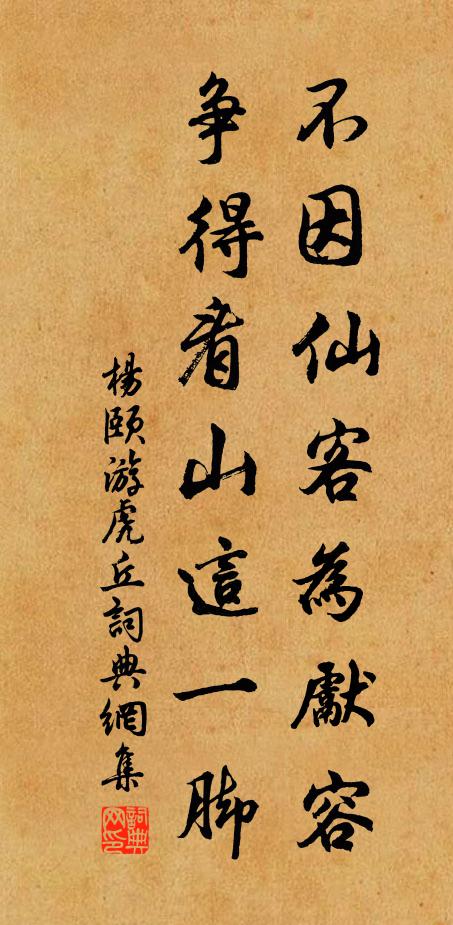 不因仙客為獻容
争得看山這一脚
楊頤游虎丘詞典網集
詞典网印